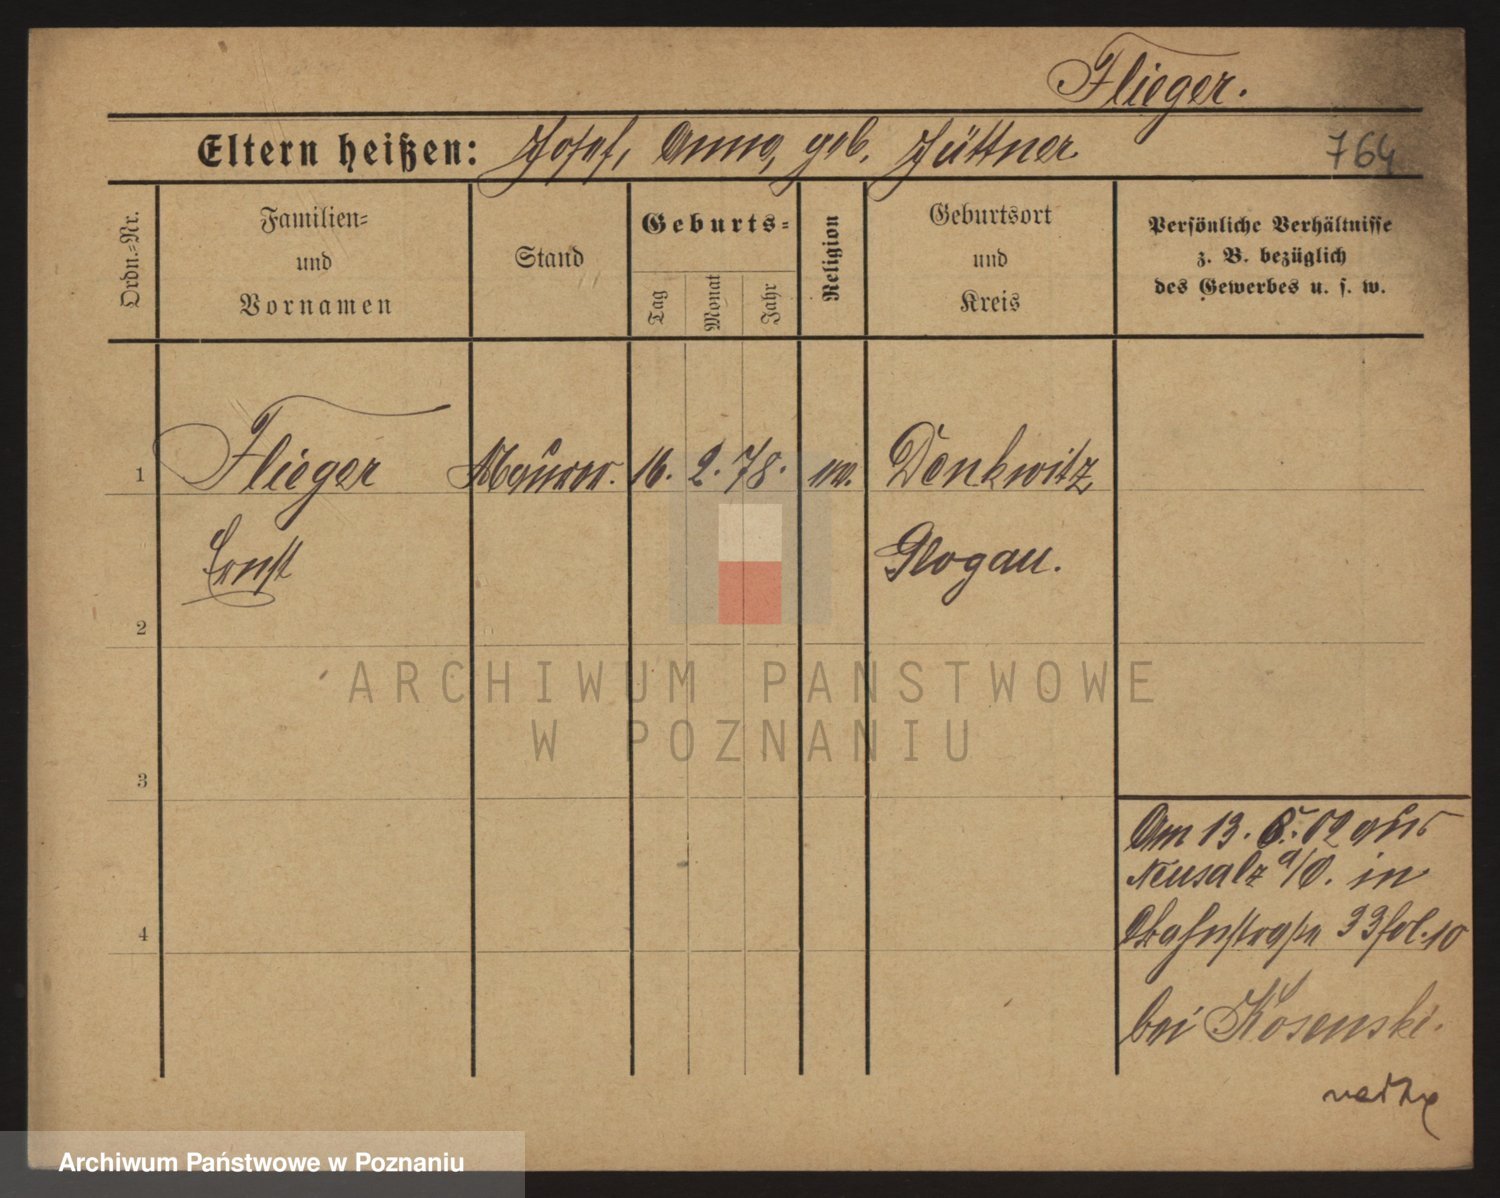 Flieger.
Eltern heißen: Josef, Anna, geb. Hüttner.
764
Ordn.-Nr.
Familien-
und
Vornamen
Stand
Geburts-
Tag
Monat
Jahr
Religion
Geburtsort
und
Kreis
Persönliche Verhältnisse
z. B. bezüglich
des Gewerbes u. s. w.
1
Flieger Maurer. 16. 2. 78. Denkwitz,
Ernst Glogau.
2
3
4
Am 13. 8. 02 aus
Neusalz a/O. in
Bahnstraße 33 fol. 10
bei Kosenski.
ARCHIWUM PAŃSTWOWE
W POZNANIU
Archiwum Państwowe w Poznaniu